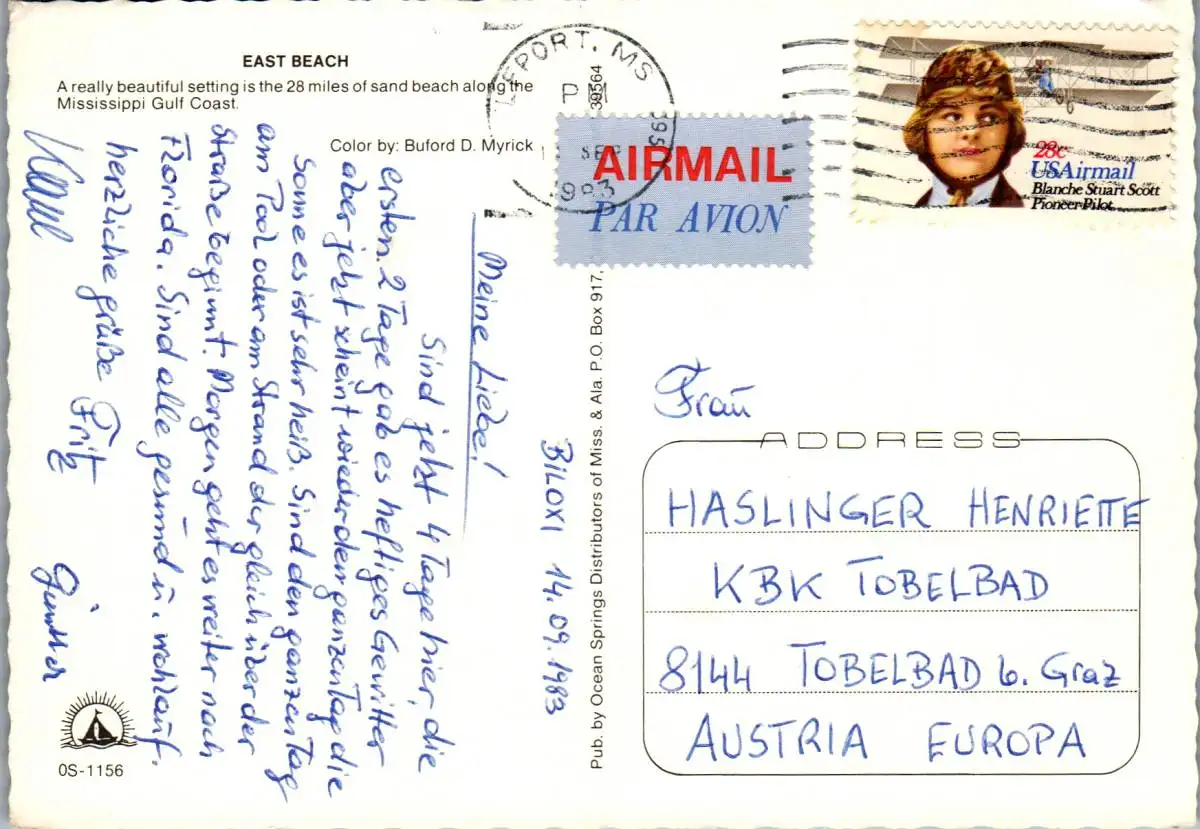 EAST BEACH
A really beautiful setting is the 28 miles of sand beach along the
Mississippi Gulf Coast.
Color by: Buford D. Myrick
BILOXI 14.09.1983
Meine Liebe!
Sind jetzt 4 Tage hier, die
ersten 2 Tage gab es heftiges Gewitter
aber jetzt scheint wieder den ganzen Tag die
Sonne es ist sehr heiß. Sind den ganzen Tag
am Pool oder am Strand der gleich über der
Straße beginnt. Morgen geht es weiter nach
Florida. Sind alle gesund u. wohlauf.
herzliche grüße Fritz
Günther
OS-1156
Pub. by Ocean Springs Distributors of Miss. & Ala. P.O. Box 917,
39564
PORT, MS
PM
SEP
1983
395
AIRMAIL
PAR AVION
28c
USAirmail
Blanche Stuart Scott
Pioneer Pilot
Frau
ADDRESS
HASLINGER HENRIETTE
KBK TOBELBAD
8144 TOBELBAD b. Graz
AUSTRIA EUROPA